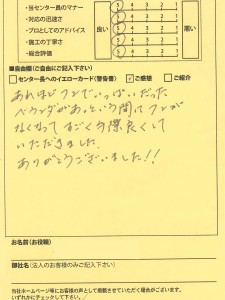 ・当センター員のマナー
・対応の迅速さ
・プロとしてのアドバイス
・施工の丁寧さ
・総合評価
良い
悪い
5 4 3 2 1
5 4 3 2 1
5 4 3 2 1
5 4 3 2 1
5 4 3 2 1
■自由欄(ご自由にご記入下さい)
□センター長へのイエローカード(警告書) ☑ご感想 □ご紹介
あれほどフンでいっぱいだった
ベランダがあっという間にフンが
なくなってすごく手際良くして
いただきました。
ありがとうございました!!
お名前(お役職)
御社名(法人のお客様のみご記入下さい)
当社ホームページ等にお客様の声として掲載させていただく場合がございます。
いずれかにチェックして下さい。